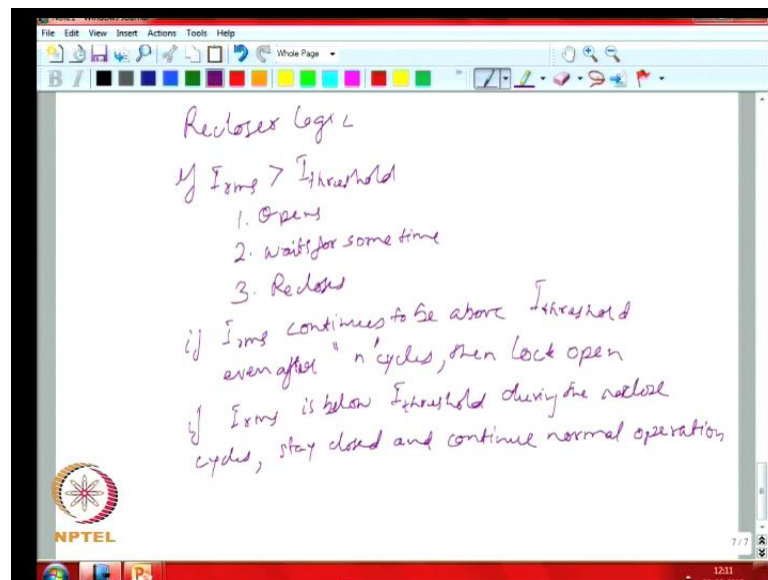 File Edit View Insert Actions Tools Help
Whole Page
B I
Recloser Logic
if Irms > Ithreshold
1. Opens
2. waits for some time
3. Recloses
if Irms continues to be above Ithreshold
even after "n" cycles, then lock open
if Irms is below Ithreshold during the reclose
cycles, stay closed and continue normal operation
NPTEL
7/7
12:11